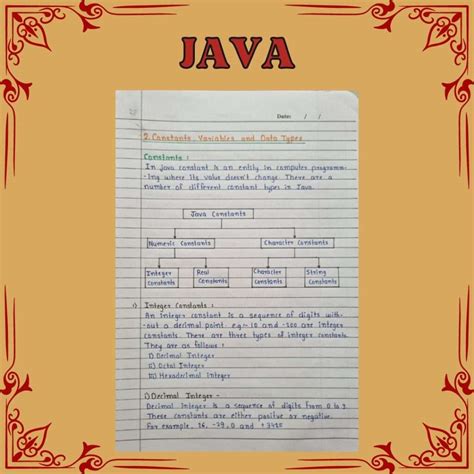 JAVA
Date: / /
2. Constants, Variables and Data Types
Constants :
In java constant is an entity in computer programm-
-ing where its value doesn't change. There are a
number of different constant types in Java.
Java Constants
Numeric Constants Character Constants
Integer Constants Real Constants Character Constants String Constants
i) Integer Constants :
An integer constant is a sequence of digits with-
-out a decimal point. e.g.- 10 and -500 are integer
constants. There are three types of integer constants.
They are as follows :
I) Decimal Integer
II) Octal Integer
III) Hexadecimal Integer
i) Decimal Integer -
Decimal Integer is a sequence of digits from 0 to 9.
These constants are either positive or negative.
For example, 16, -29, 0 and +3425